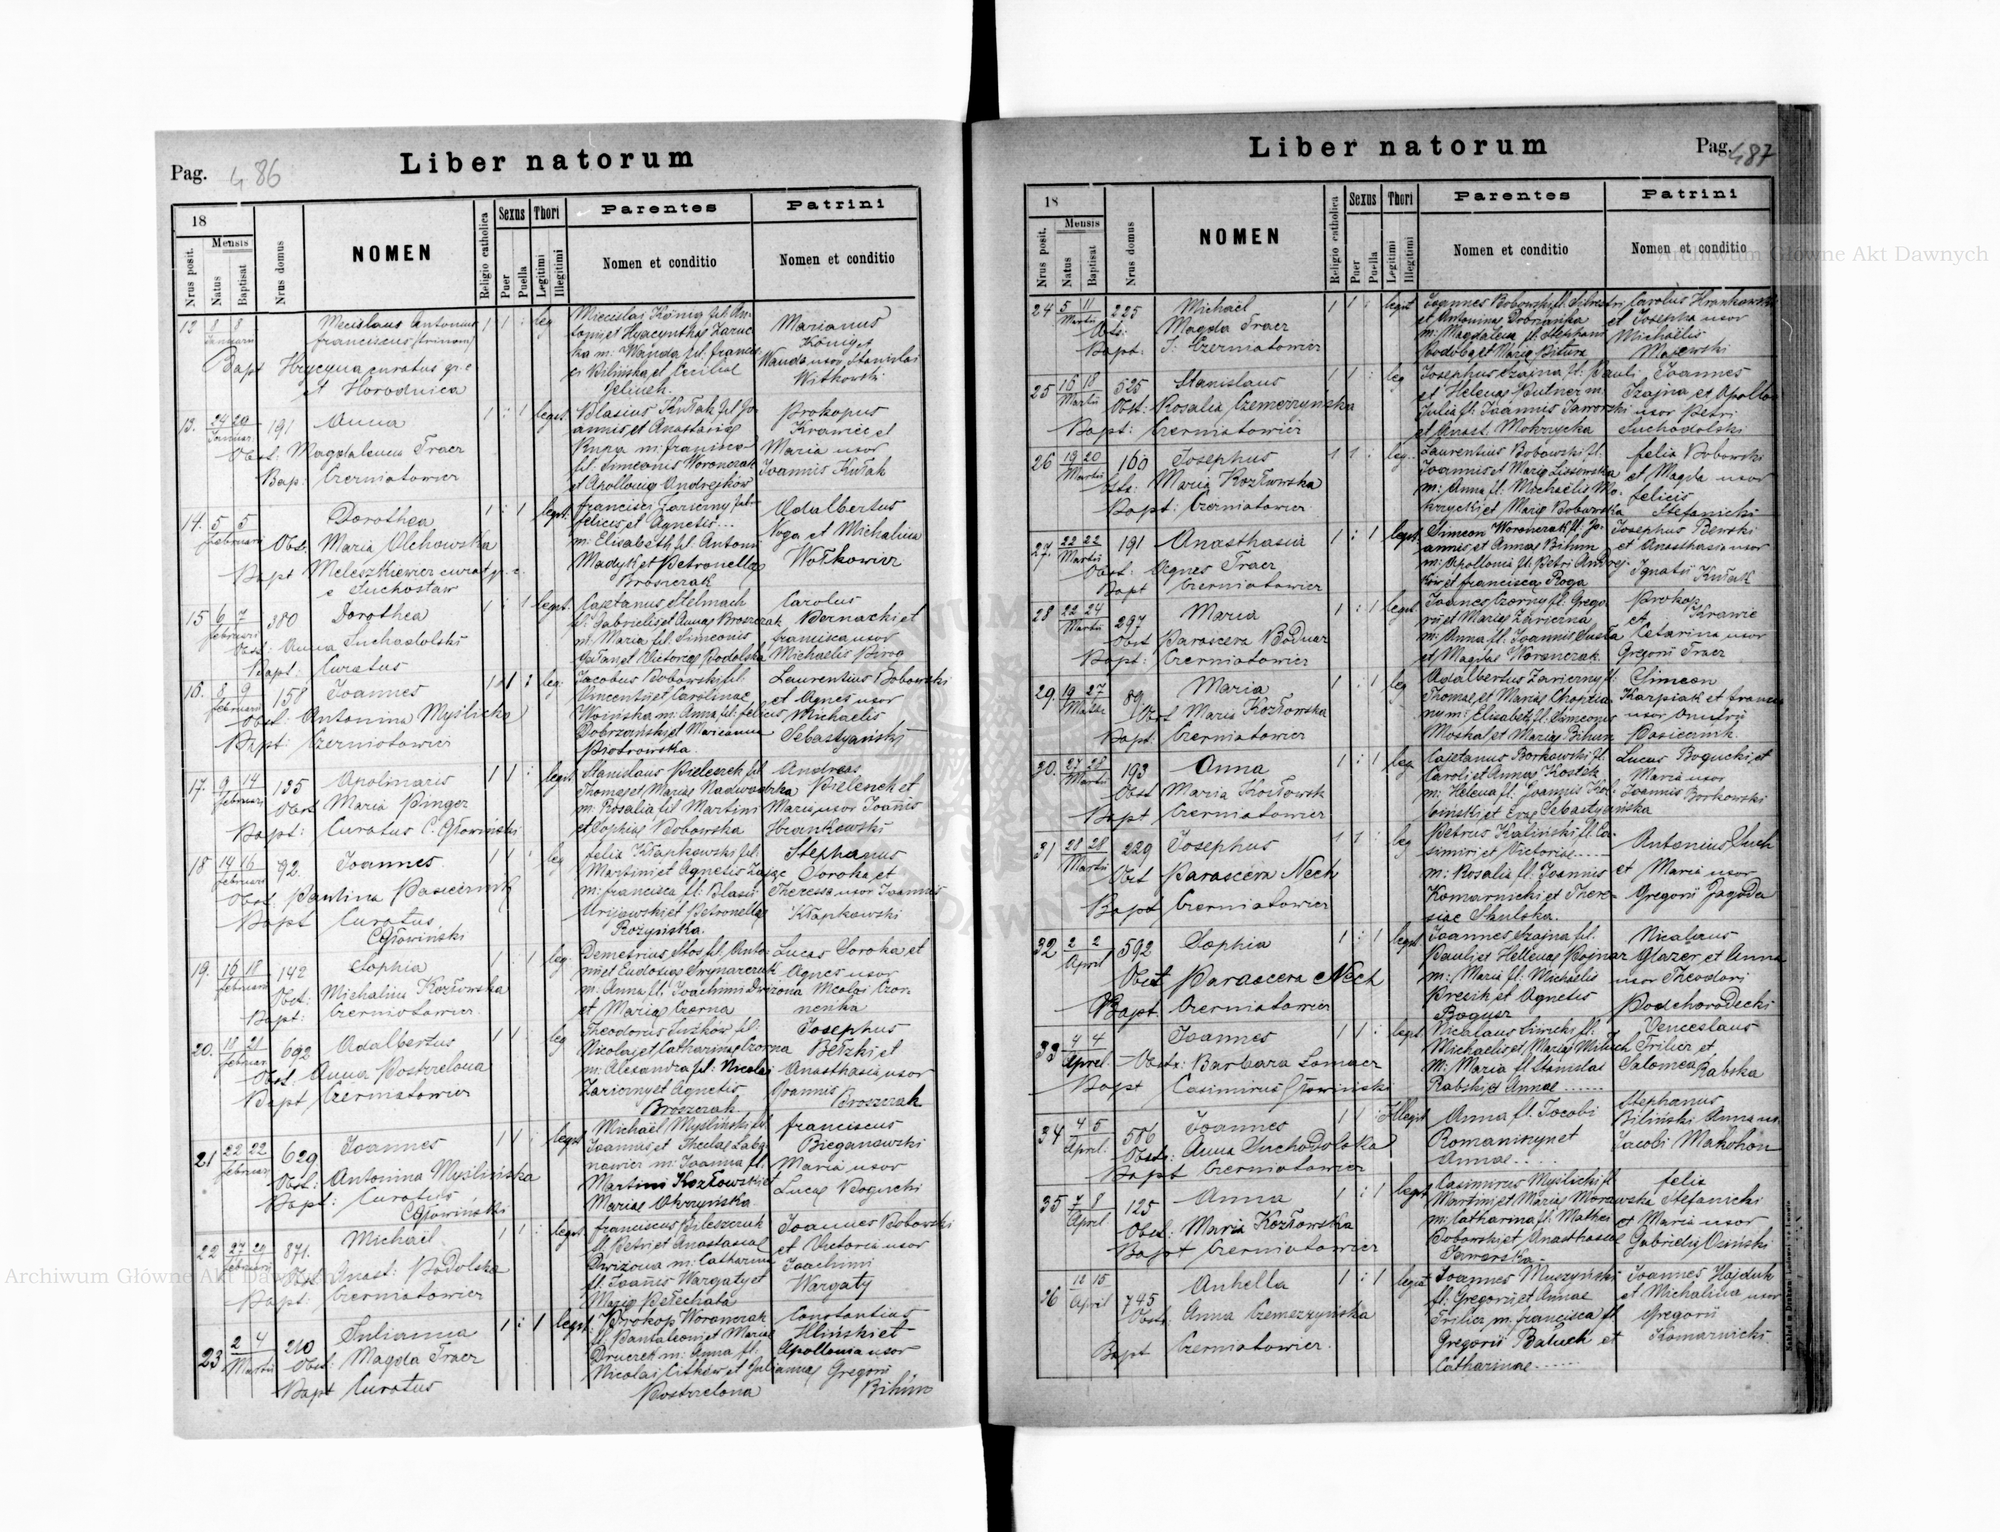 Pag. 486
Liber natorum
18
Nrus posit.
Mensis
Natus
Baptisat
Nrus domus
NOMEN
Religio catholica
Sexus
Puer
Puella
Thori
Legitimi
Illegitimi
Parentes
Nomen et conditio
Patrini
Nomen et conditio
12 8 Januarii Mecislaus Antonius 1 1 : leg Miecislas König fil An-
franciscus (trinom) toni et Hyacyntha
Bapt Hrycyna curatus gr. c ka m: Wanda fil: francis-
Horodnica ci Bilińska et Ceciliae
Marianus
König et
Wanda uxor Stanislai
Witkowski
13. 24 29 Januar 191 Anna 1 : 1 legit. Blasius Kułak fil Jo-
Obst: Magdalena Tracz annis et Anastasiae
Bap: Czerniatowicz m: francisca
fil: Simeonis Woronczak
et Apollonia Andrejków
Prokopus
Krawiec et
Maria uxor
Joannis Kułak
14. 5 5 februarii Dorothea 1 : 1 legit. francisci Zarierny fil-
Obst: Maria Olchowska felicis et Agnetis...
Bapt Meleszkiewicz curat gr. c. m: Elisabeth fil. Antoni
e Suchostaw Madyk et Petronella
Broszczak
Adalbertus
Noga et Michalina
Wołkowicz
15 6 7 februarii 380 Dorothea 1 : 1 legit. Cajetanus Stelmach
Obst: Anna Suchodolski fil. Gabrielis et Annae Broszczak
Bapt: Curatus m: Maria fil. Simeonis
et Victoria Podolska
Carolus
Bernacki et
francisca uxor
Michaelis
16. 8 9 februarii 158 Joannes 1 1 : leg. Jacobus Bobowski fil:
Obst: Antonina Myślicka Vincenti et Carolinae
Bapt: Czerniatowicz Woińska m: Anna fil: felicis
Dobrzański et Marianna
Piotrowska
Laurentius Bobowski
et Agnes uxor
Michaelis
Sebastyański
17. 9 14 februarii 135 Apolinaris 1 1 : legit. Stanislaus Pieleszek fil
Obst Maria Pinger Thomae et Maria Nadwodzka
Bapt: Curatus C. Głowiński m: Rosalia fil Martini
et Sophia Bobowska
Andreas
Pieleszek et
Maria uxor Joannis
Hrankowski
18 14 16 februarii 92. Joannes. 1 1 : leg felix Kłapkowski fil:
Obst: Paulina Pasiecznik Martini et Agnetis Zając
Bapt Curatus m: francisca fil: Blasii
C Głowiński et Petronella
Rożyńska.
Stephanus
Soroka et
Theressa uxor Joannis
Kłapkowski
19. 16 18 februarii 142 Sophia 1 : 1 leg. Demetrius Stos fil. Anto-
Obst: Michalina Kozłowska ni et Eudosia
Bapt: Czerniatowicz. m: Anna fil: Joachimi Dwizona
et Maria Czorna
Lucas Soroka et
Agnes uxor
Nicolai Czor-
nenka
20. 18 21 februar 692 Adalbertus 1 1 : leg Theodorus Suzków fil:
Obst. Anna Postrzelona Nicolai et Catharina Czorna
Bapt Czerniatowicz m: Alexandra fil: Nicolai
Zarierny et Agnetis
Broszczak
Josephus
Bełzki et
Anasthasia uxor
Joannis
Broszczak
21 22 22 februar 629 Joannes 1 1 : legit. Michaël Myśliński fil.
Obst: Antonina Myślińska Joannis et Theclae
Bapt: Curatus m: Joanna fil:
C Głowiński Martini Kozłowski et
Maria Okrzyńska.
franciscus
Bieganowski
Maria uxor
Lucas Bogucki
22 27 29 februarii 871. Michaël. 1 1 : legit. franciscus Bileszczuk
Obst. Anast: Podolska fil Petri et Anastasiae
Bapt: Czerniatowicz Dwizona m: Catharina
fil: Joannis Wargaty et
Maria Petechata
Joannes Bobowski
et Victoria uxor
Joachimi
Wargaty
23 2 4 Martii 210 Julianna 1 : 1 legit. Prokop Woronczak
Obst: Magda Tracz fil. Pantaleoni et Maria
Bapt Curatus m: Anna fil:
Nicolai et Julianna
Postrzelona
Constantius
Iliński et
Apollonia uxor
Gregorii
Bihun
Liber natorum
Pag. 487
18
Nrus posit.
Mensis
Natus
Baptisat
Nrus domus
NOMEN
Religio catholica
Sexus
Puer
Puella
Thori
Legitimi
Illegitimi
Parentes
Nomen et conditio
Patrini
Nomen et conditio
24 5 11 Martii 225 Michaël 1 1 : legit Joannes Bobowski fil. Silvestri
Obst: Magda Tracz et Antonina Dobrzańska
Bapt: J: Czerniatowicz m: Magdalena fil. Stephani
et Maria Bitura
Carolus Hrankowski
et Josepha uxor
Michaëlis
Majewski
25 16 18 Martii 525 Stanislaus 1 1 : leg Josephus Szajna fil: Pauli
Obst: Rosalia Czemerzynska et Helena Putner m:
Bapt: Czerniatowicz Julia fil: Joannis Jaworski
et Anast. Mokrzycka
Joannes
Szajna et Apollon
uxor Petri
Suchodolski
26 19 20 Martii 160 Josephus 1 1 : leg. Laurentius Bobowski fil.
Obst: Maria Kozłowska Joannis et Maria Lissowska
Bapt: Czerniatowicz. m: Anna fil: Michaëlis Mo-
krzycki et Maria Bobowska
felix Bobowski
et Magda uxor
felicis
Stefanicki
27. 22 22 Martii 191 Anasthasia 1 : 1 legit. Simeon Woronczak fil. Jo-
Obst: Agnes Tracz annis et Annae Bihun
Bapt Czerniatowicz m: Apollonia fil. Petri Andrej-
ków et francisca Roga
Josephus
et Anasthasia uxor
Ignatii Kułak
28 22 24 Martii 297 Maria 1 : 1 legit Joannes Czorny fil. Grego-
Obst Parascera Bodnar rii et Maria Zarierna
Bapt: Czerniatowicz m: Anna fil: Joannis Susła
et Magda Woronczak
Prokop
Krawie
et
Catarina uxor
Gregorii Tracz
29. 19 27 89 Maria 1 : 1 leg Adalbertus Zarierny fil:
Obst Maria Kozłowska Thomae et Maria
Bapt: Czerniatowicz m: Elisabet fil. Simeonis
Moskal et Maria Bihun
Simeon
Karpiak et
uxor Dmitrii
Pasiecznik.
30. 27 28 Martii 193 Anna 1 : 1 leg Cajetanus Borkowski fil.
Obst Maria Kozłowsk Caroli et Annae
Bapt Czerniatowicz m: Helena fil: Joannis
et Eva Sebastyańska
Lucas Bogucki et
Maria uxor
Joannis Borkowski
31 28 28 Martii 229 Josephus 1 1 : leg Petrus Kaliński fil. Ca-
Obst Parascera Nech simiri et Victoriae......
Bapt Czerniatowicz m: Rosalia fil: Joannis
Komarnicki et There-
siae Skulska.
Antonius Such
et Maria uxor
Gregorii Jagoda
32 2 2 April 592 Sophia 1 : 1 legit Joannes Szajna fil.
Obst Parascera Nech Pauli et Hellena Pojnar
Bapt Czerniatowicz m: Maria fil: Michaëlis
Presik et Agnetis
Bogusz
Nicolaus
Glazer et Anna
uxor Theodori
Podhorodecki
33 4 4 April. Joannes 1 1 : legit Nicolaus Siwicki fil:
Obst: Barbara Lomacz Michaelis et Maria
Bapt Casimirus Głowiński M: Maria fil Stanislai
Rabski et Annae.......
Venceslaus
Trilicz et
Salomea Rabska
34 4 5 April. 506 Joannes 1 1 : Illegit Anna fil. Jacobi
Obst: Anna Suchodolska Romaniszyn et
Bapt Czerniatowicz Annae.....
Stephanus
Biliński Anna ux.
Jacobi Makohon
35 7 8 April 125 Anna 1 : 1 legit Casimirus Myślicki fil
Obst: Maria Kozłowska Martini et Maria Morawska
Bapt Czerniatowicz m: Catharina fil. Mathei
Bobowski et Anasthasiae
Jaworska.
felix
Stefanicki
et Maria uxor
Gabrielis Osiński
36 12 15 April 745 Anhella 1 : 1 legit Joannes Muszyński
Obst: Anna Czemerzyńska fil: Gregorii et Annae
Bapt Czerniatowicz. Trilicz m. francisca fil.
Gregorii Baluch et
Catharinae......
Joannes Hajduk
et Michalina uxor
Gregorii
Komarnicki.
Archiwum Główne Akt Dawnych
Archiwum Główne Akt Dawnych